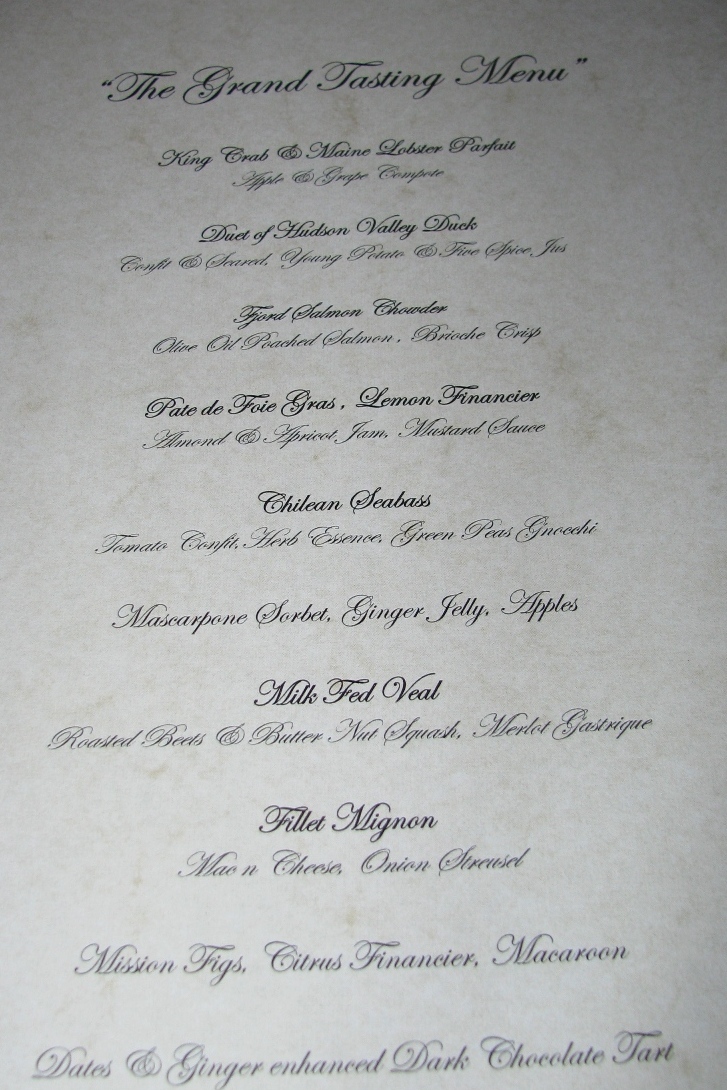 “The Grand Tasting Menu”
King Crab & Maine Lobster Parfait
Apple & Grape Compote
Duet of Hudson Valley Duck
Confit & Seared, Young Potato & Five Spice Jus
Fjord Salmon Chowder
Olive Oil Poached Salmon , Brioche Crisp
Pate de Foie Gras , Lemon Financier
Almond & Apricot Jam, Mustard Sauce
Chilean Seabass
Tomato Confit, Herb Essence, Green Peas Gnocchi
Mascarpone Sorbet, Ginger Jelly, Apples
Milk Fed Veal
Roasted Beets & Butter Nut Squash, Merlot Gastrique
Fillet Mignon
Mac n Cheese, Onion Streusel
Mission Figs, Citrus Financier, Macaroon
Dates & Ginger enhanced Dark Chocolate Tart